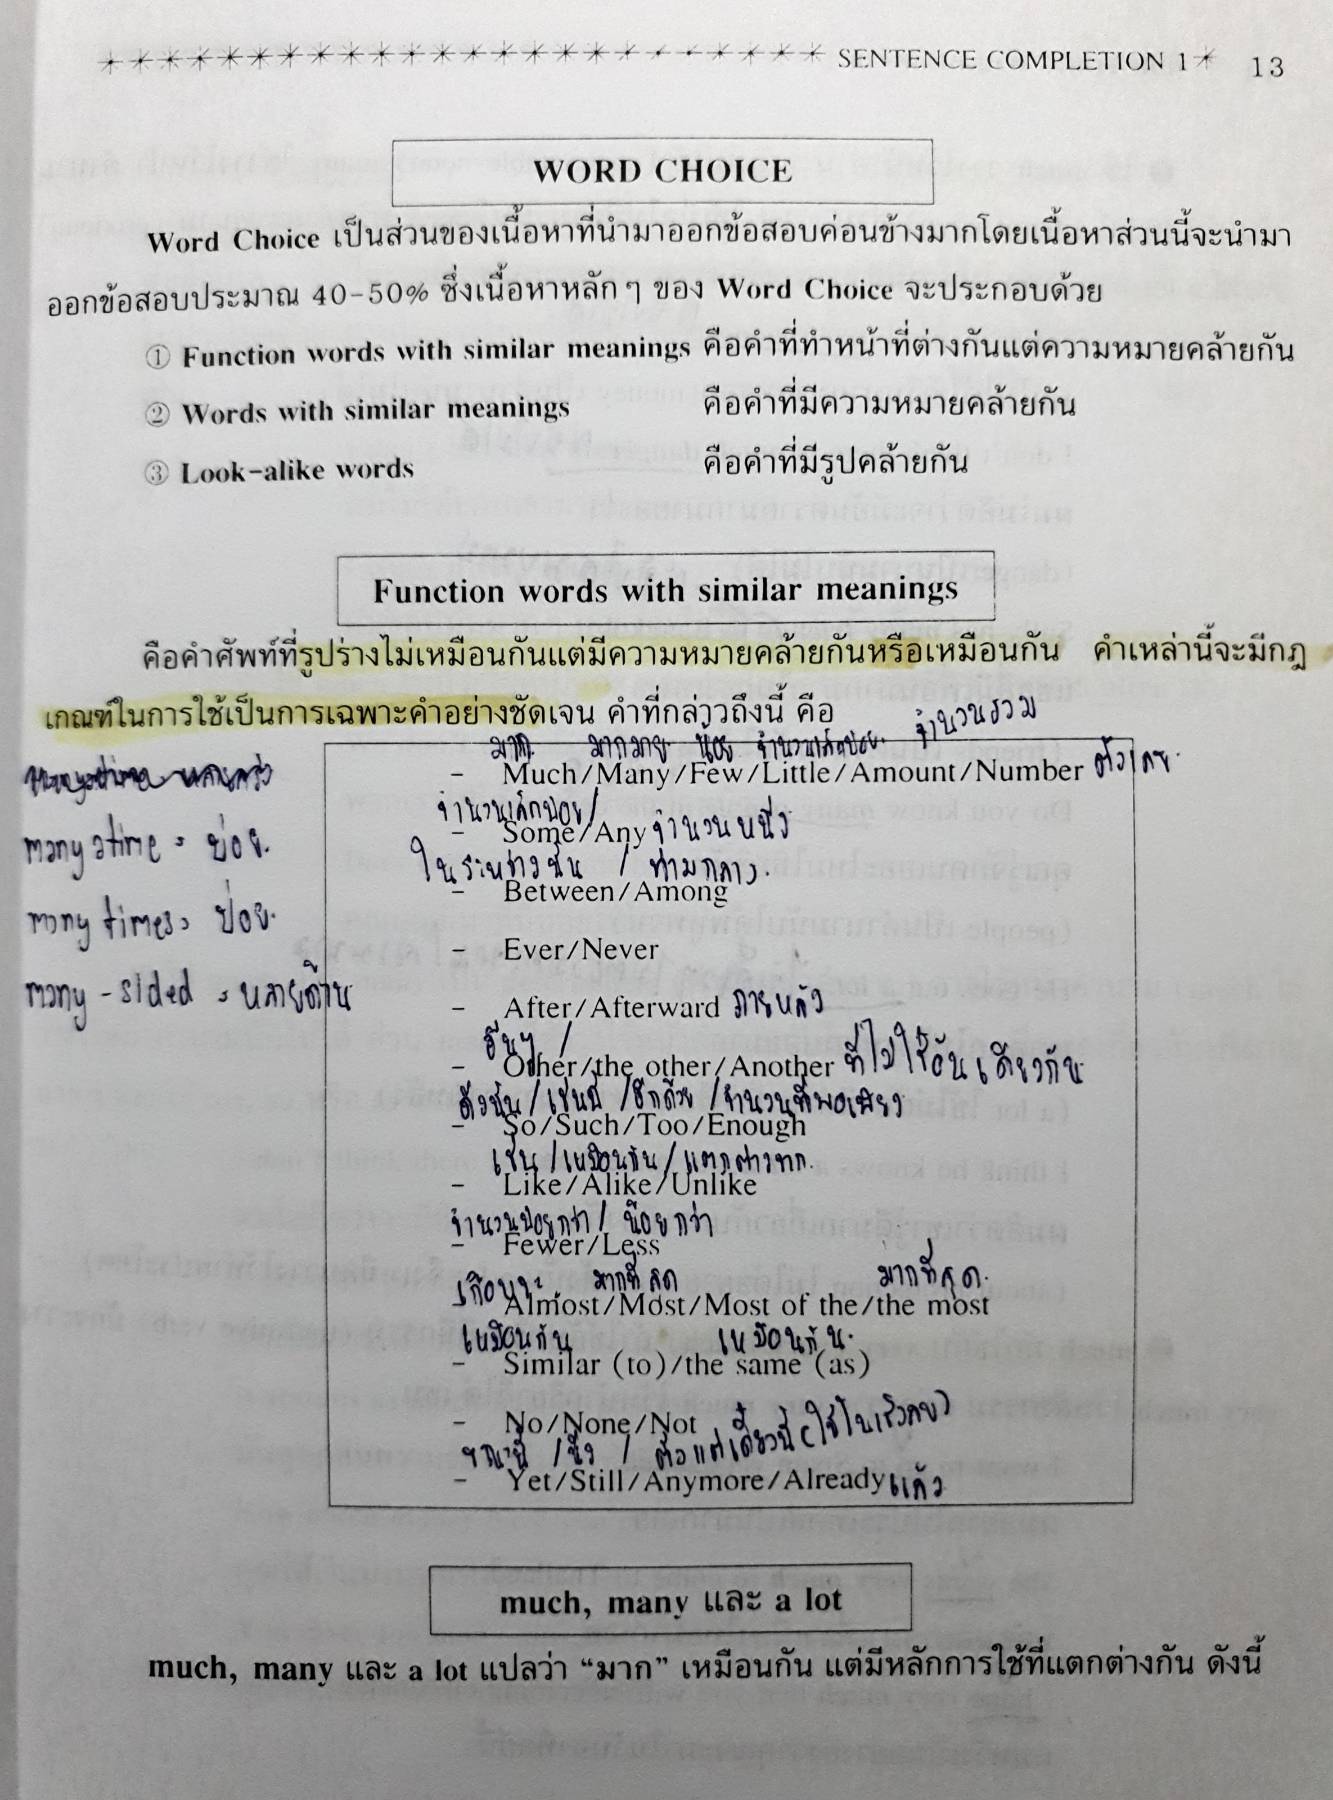 SENTENCE COMPLETION 1 13
WORD CHOICE
Word Choice เป็นส่วนของเนื้อหาที่นำมาออกข้อสอบค่อนข้างมากโดยเนื้อหาส่วนนี้จะนำมา
ออกข้อสอบประมาณ 40-50% ซึ่งเนื้อหาหลักๆ ของ Word Choice จะประกอบด้วย
① Function words with similar meanings คือคำที่ทำหน้าที่ต่างกันแต่ความหมายคล้ายกัน
② Words with similar meanings คือคำที่มีความหมายคล้ายกัน
③ Look-alike words คือคำที่มีรูปคล้ายกัน
Function words with similar meanings
คือคำศัพท์ที่รูปร่างไม่เหมือนกันแต่มีความหมายคล้ายกันหรือเหมือนกัน คำเหล่านี้จะมีกฎ
เกณฑ์ในการใช้เป็นการเฉพาะคำอย่างชัดเจน คำที่กล่าวถึงนี้ คือ
มาก มากมาย น้อย จำนวนเล็กน้อย จำนวนรวม
- Much/Many/Few/Little/Amount/Number ตัวเลข
many a time = บ่อย.
many times = บ่อย.
many - sided = หลายด้าน
จำนวนเล็กน้อย/
- Some/Any จำนวนหนึ่ง
ในระหว่างนั้น / ท่ามกลาง.
- Between/Among
- Ever/Never
- After/Afterward ภายหลัง
อื่นๆ /
- Other/the other/Another ที่ไม่ใช่อันเดียวกัน
ดังนั้น/เช่นนี้ /อีกด้วย /จำนวนที่พอเพียง
- So/Such/Too/Enough
เช่น/เหมือนกัน/แตกต่างจาก.
- Like/Alike/Unlike
จำนวนน้อยกว่า/ น้อยกว่า
- Fewer/Less
เกือบจะ. มากที่สุด มากที่สุด.
Almost/Most/Most of the/the most
เหมือนกัน เหมือนกัน.
- Similar (to)/the same (as)
- No/None/Not
ขณะนี้ /นิ่ง / ตั้งแต่เดี๋ยวนี้
- Yet/Still/Anymore/Already แล้ว
much, many และ a lot
much, many และ a lot แปลว่า “มาก” เหมือนกัน แต่มีหลักการใช้ที่แตกต่างกัน ดังนี้